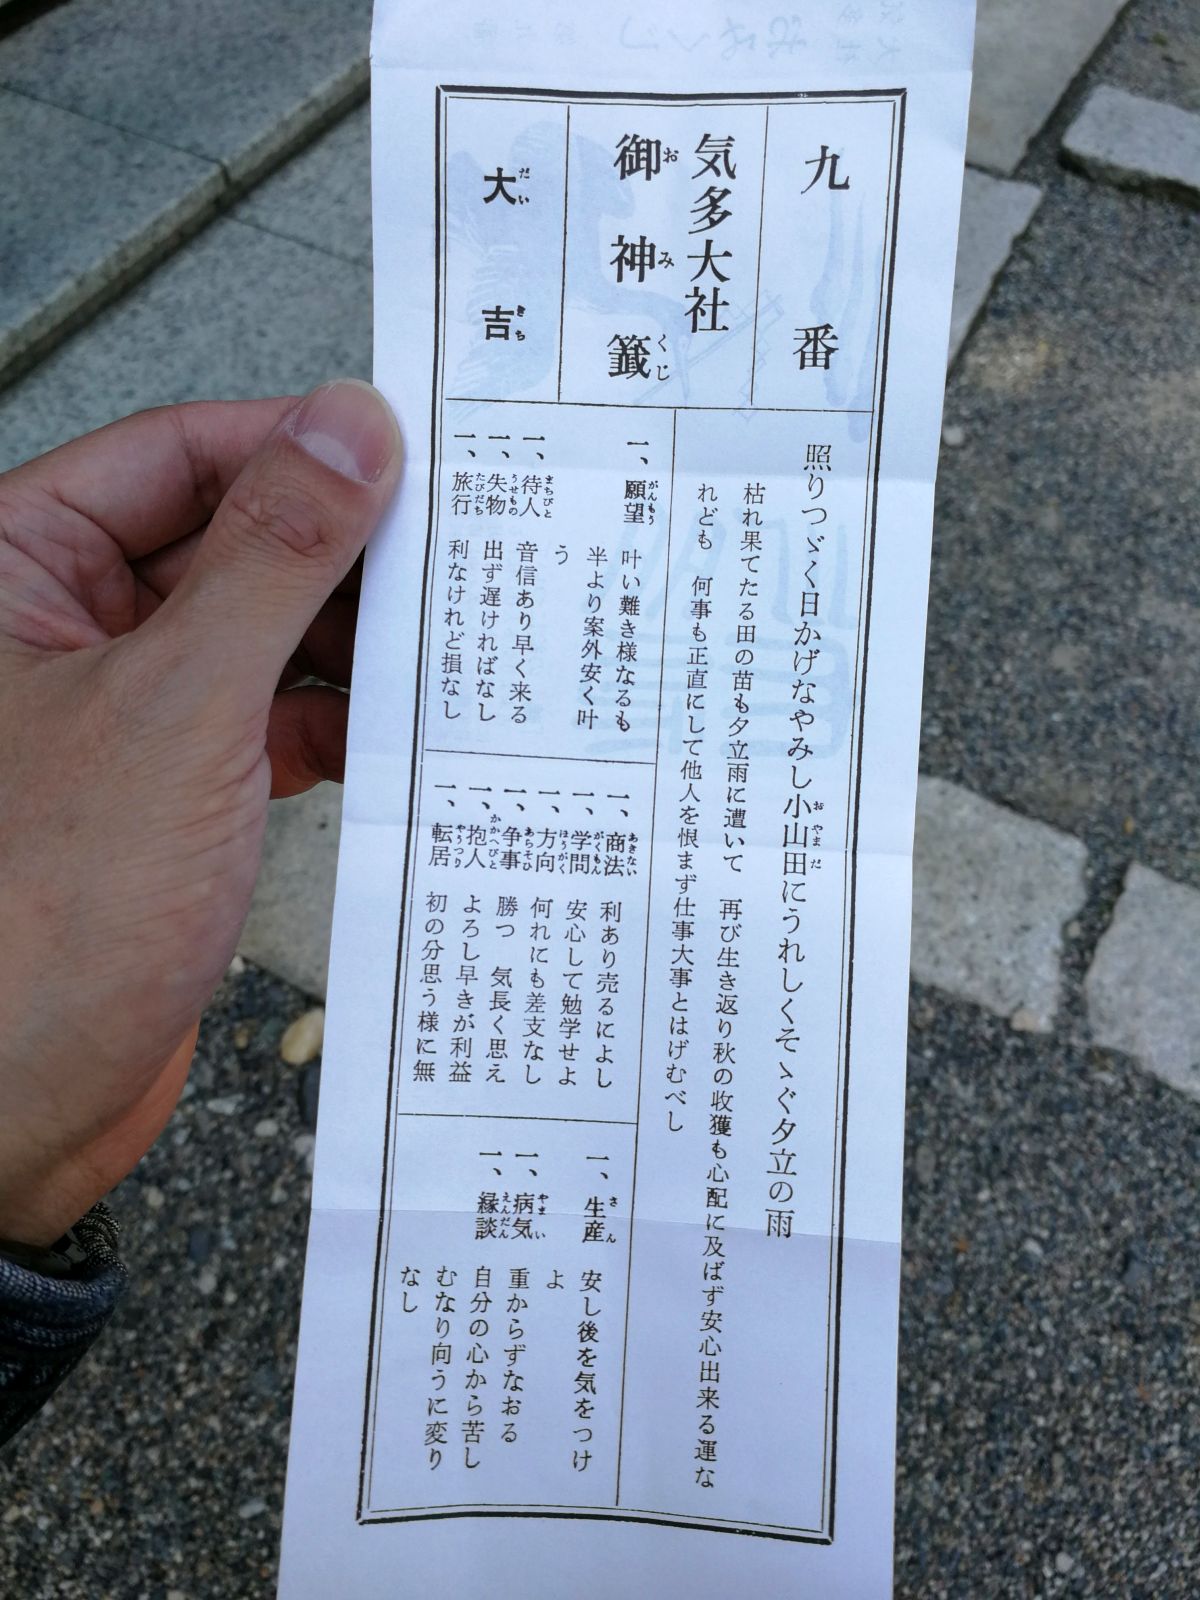 九番
気多大社
御神籤
おみくじ
大吉
だいきち
照りつゞく日かげなやみし小山田にうれしくそゝぐ夕立の雨
おやまだ
枯れ果てたる田の苗も夕立雨に遭いて 再び生き返り秋の収獲も心配に及ばず安心出来る運な
れども 何事も正直にして他人を恨まず仕事大事とはげむべし
一、願望 叶い難き様なるも
がんもう
半より案外安く叶
う
一、待人 音信あり早く来る
まちびと
一、失物 出ず遅ければなし
うせもの
一、旅行 利なけれど損なし
たびだち
一、商法 利あり売るによし
あきない
一、学問 安心して勉学せよ
がくもん
一、方向 何れにも差支なし
ほうがく
一、争事 勝つ 気長く思え
あらそひ
一、抱人 よろし早きが利益
かかへびと
一、転居 初の分思う様に無
やうつり
一、生産 安し後を気をつけ
さん
よ
一、病気 重からずなおる
やまい
一、縁談 自分の心から苦し
えんだん
むなり向うに変り
なし